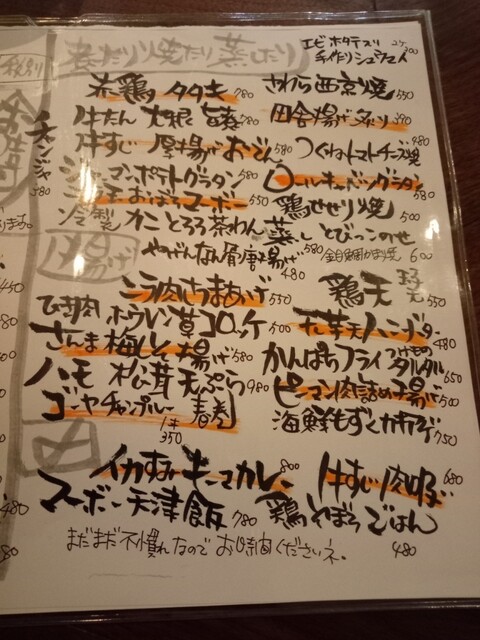 煮たり 焼たり 蒸したり
エビホタテスリ 手作りシュウマイ 2ケ 300
赤鶏 タタキ 780
さわら西京焼 550
牛たん 大根 旨煮 780
田舎揚げ炙り 390
牛すじ 厚揚げ おでん 580
つくねトマトチーズ焼 480
ジャーマンポテトグラタン 580
ロールキャベツグラタン 580
おぼろマーボー 550
鶏せせり焼 500
冷製 カニ とろろ 茶わん蒸し とびっこのせ
600
揚げ
やげんなん骨唐揚げ 480
ニラ肉ちまあげ 550
鶏天 550
ひき肉 ホウレン草コロッケ 500
480
さんま 梅しそ揚げ 580
かんぱちフライ タルタル 650
ハモ 松茸 天ぷら 980
ピーマン肉詰め揚げ 500
ゴーヤチャンプルー 春巻 1本 350
海鮮もずくかきアゲ 750
イカすみキーマカレー 800
牛すじ肉 680
マーボー天津飯 780
鶏そぼろごはん 480
まだまだ不慣れなので お時間くださいネ。
チャンジャ 580